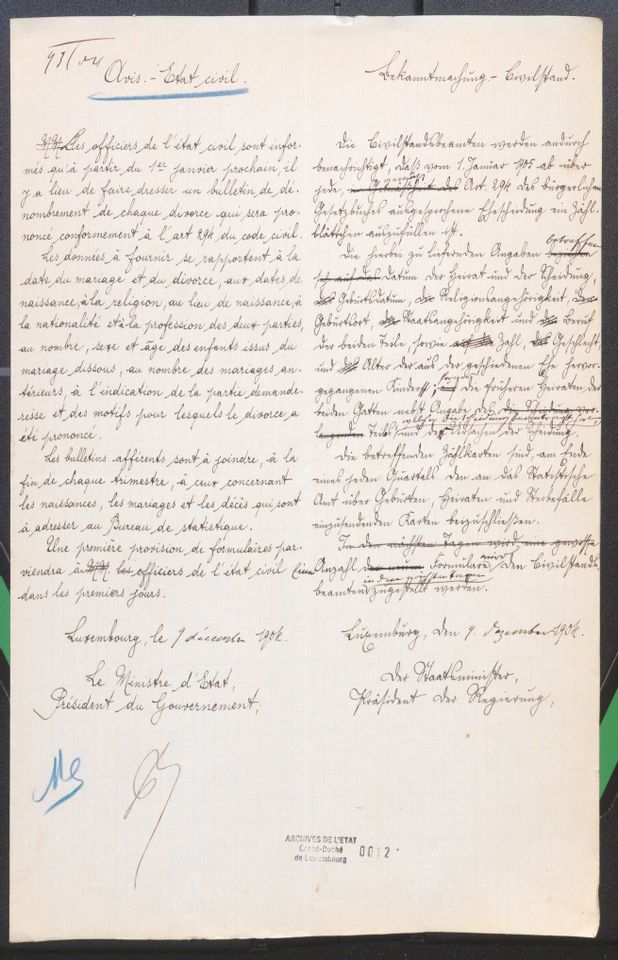 Avis. - Etat civil.
Les officiers de l'état civil sont infor-
més qu'à partir du 1er janvier prochain, il
y a lieu de faire dresser un bulletin de dé-
nombrement de chaque divorce qui sera pro-
noncé conformément à l'art 294 du code civil.
Les données à fournir se rapportent à la
date du mariage et du divorce, aux dates de
naissance, à la religion, au lieu de naissance, à
la nationalité et à la profession des deux parties,
au nombre, sexe et âge des enfants issus du
mariage dissous, au nombre des mariages an-
térieurs, à l'indication de la partie demande-
resse et des motifs pour lesquels le divorce a
été prononcé.
Les bulletins afférents sont à joindre, à la
fin de chaque trimestre, à ceux concernant
les naissances, les mariages et les décès qui sont
à adresser au Bureau de statistique.
Une première provision de formulaires par-
viendra à les officiers de l'état civil
dans les premiers jours.
Luxembourg, le 9 décembre 1904.
Le Ministre d'Etat,
Président du Gouvernement,
Bekanntmachung. - Civilstand.
Die Civilstandsbeamten werden andurch
benachrichtigt, daß vom 1. Januar 1905 ab über
jede, Art. 294 des bürgerlichen
Gesetzbuches ausgesprochene Ehescheidung ein Zähl-
blättchen auszufüllen ist.
Die hierbei zu liefernden Angaben betreffen
Datum der Heirat und der Scheidung,
Geburtsdatum, Religionsangehörigkeit,
Geburtsort, Staatsangehörigkeit und Beruf
der beiden Teile, sowie Zahl, Geschlecht
und Alter der aus der geschiedenen Ehe hervor-
gegangenen Kinder, die früheren Heiraten der
beiden Gatten nebst Angabe des
Teils und der Ursachen der Scheidung.
Die betreffenden Zählkarten sind am Ende
eines jeden Quartals den an das Statistische
Amt über Geburten, Heiraten und Sterbefälle
einzusendenden Karten beizuschließen.
In den nächsten Tagen wird eine gewisse
Eine Anzahl Formulare wird den Civilstands-
in den nächsten Tagen
beamten zugestellt werden.
Luxemburg, den 9. Dezember 1904.
Der Staatsminister,
Präsident der Regierung,
ARCHIVES DE L'ETAT
Grand-Duché
de Luxembourg
0012